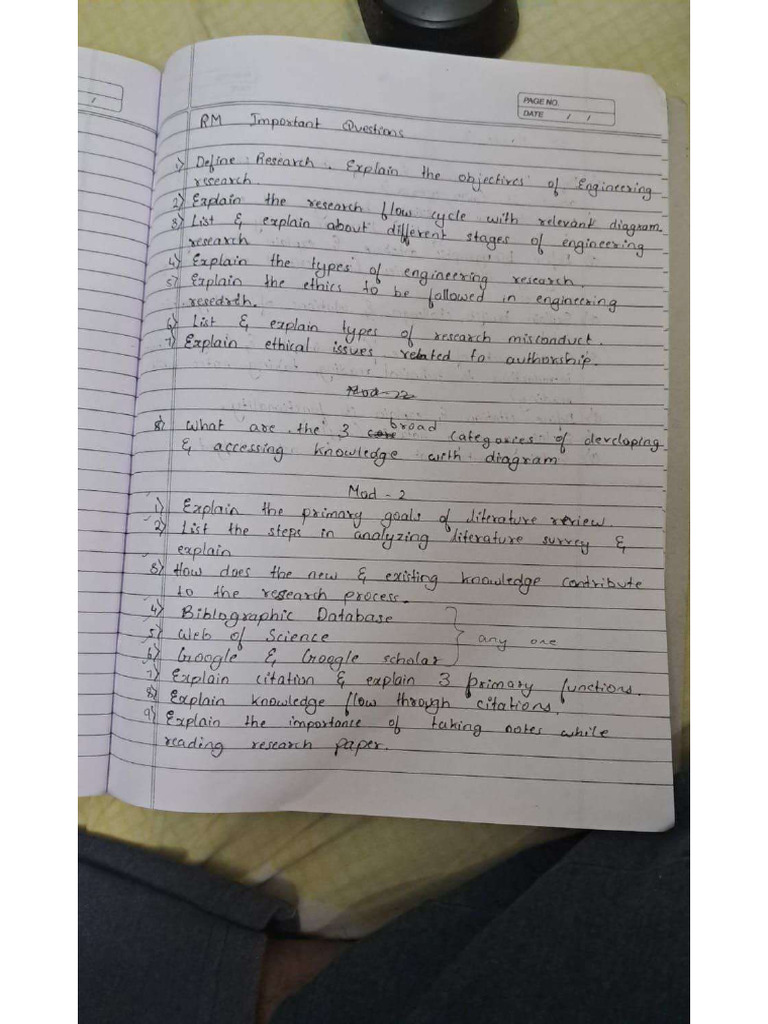 PAGE NO.
DATE / /
RM Important Questions
1) Define Research. Explain the objectives of Engineering
research.
2) Explain the research flow cycle with relevant diagram.
3) List & explain about different stages of engineering
research
4) Explain the types of engineering research.
5) Explain the ethics to be followed in engineering
research.
6) List & explain types of research misconduct.
7) Explain ethical issues related to authorship.
8) What are the 3 broad categories of developing
& accessing knowledge with diagram
Mod - 2
1) Explain the primary goals of literature review.
2) List the steps in analyzing literature survey &
explain
3) How does the new & existing knowledge contribute
to the research process.
4) Biblographic Database
5) Web of Science any one
6) Google & Google scholar
7) Explain citation & explain 3 primary functions.
8) Explain knowledge flow through citations.
9) Explain the importance of taking notes while
reading research paper.